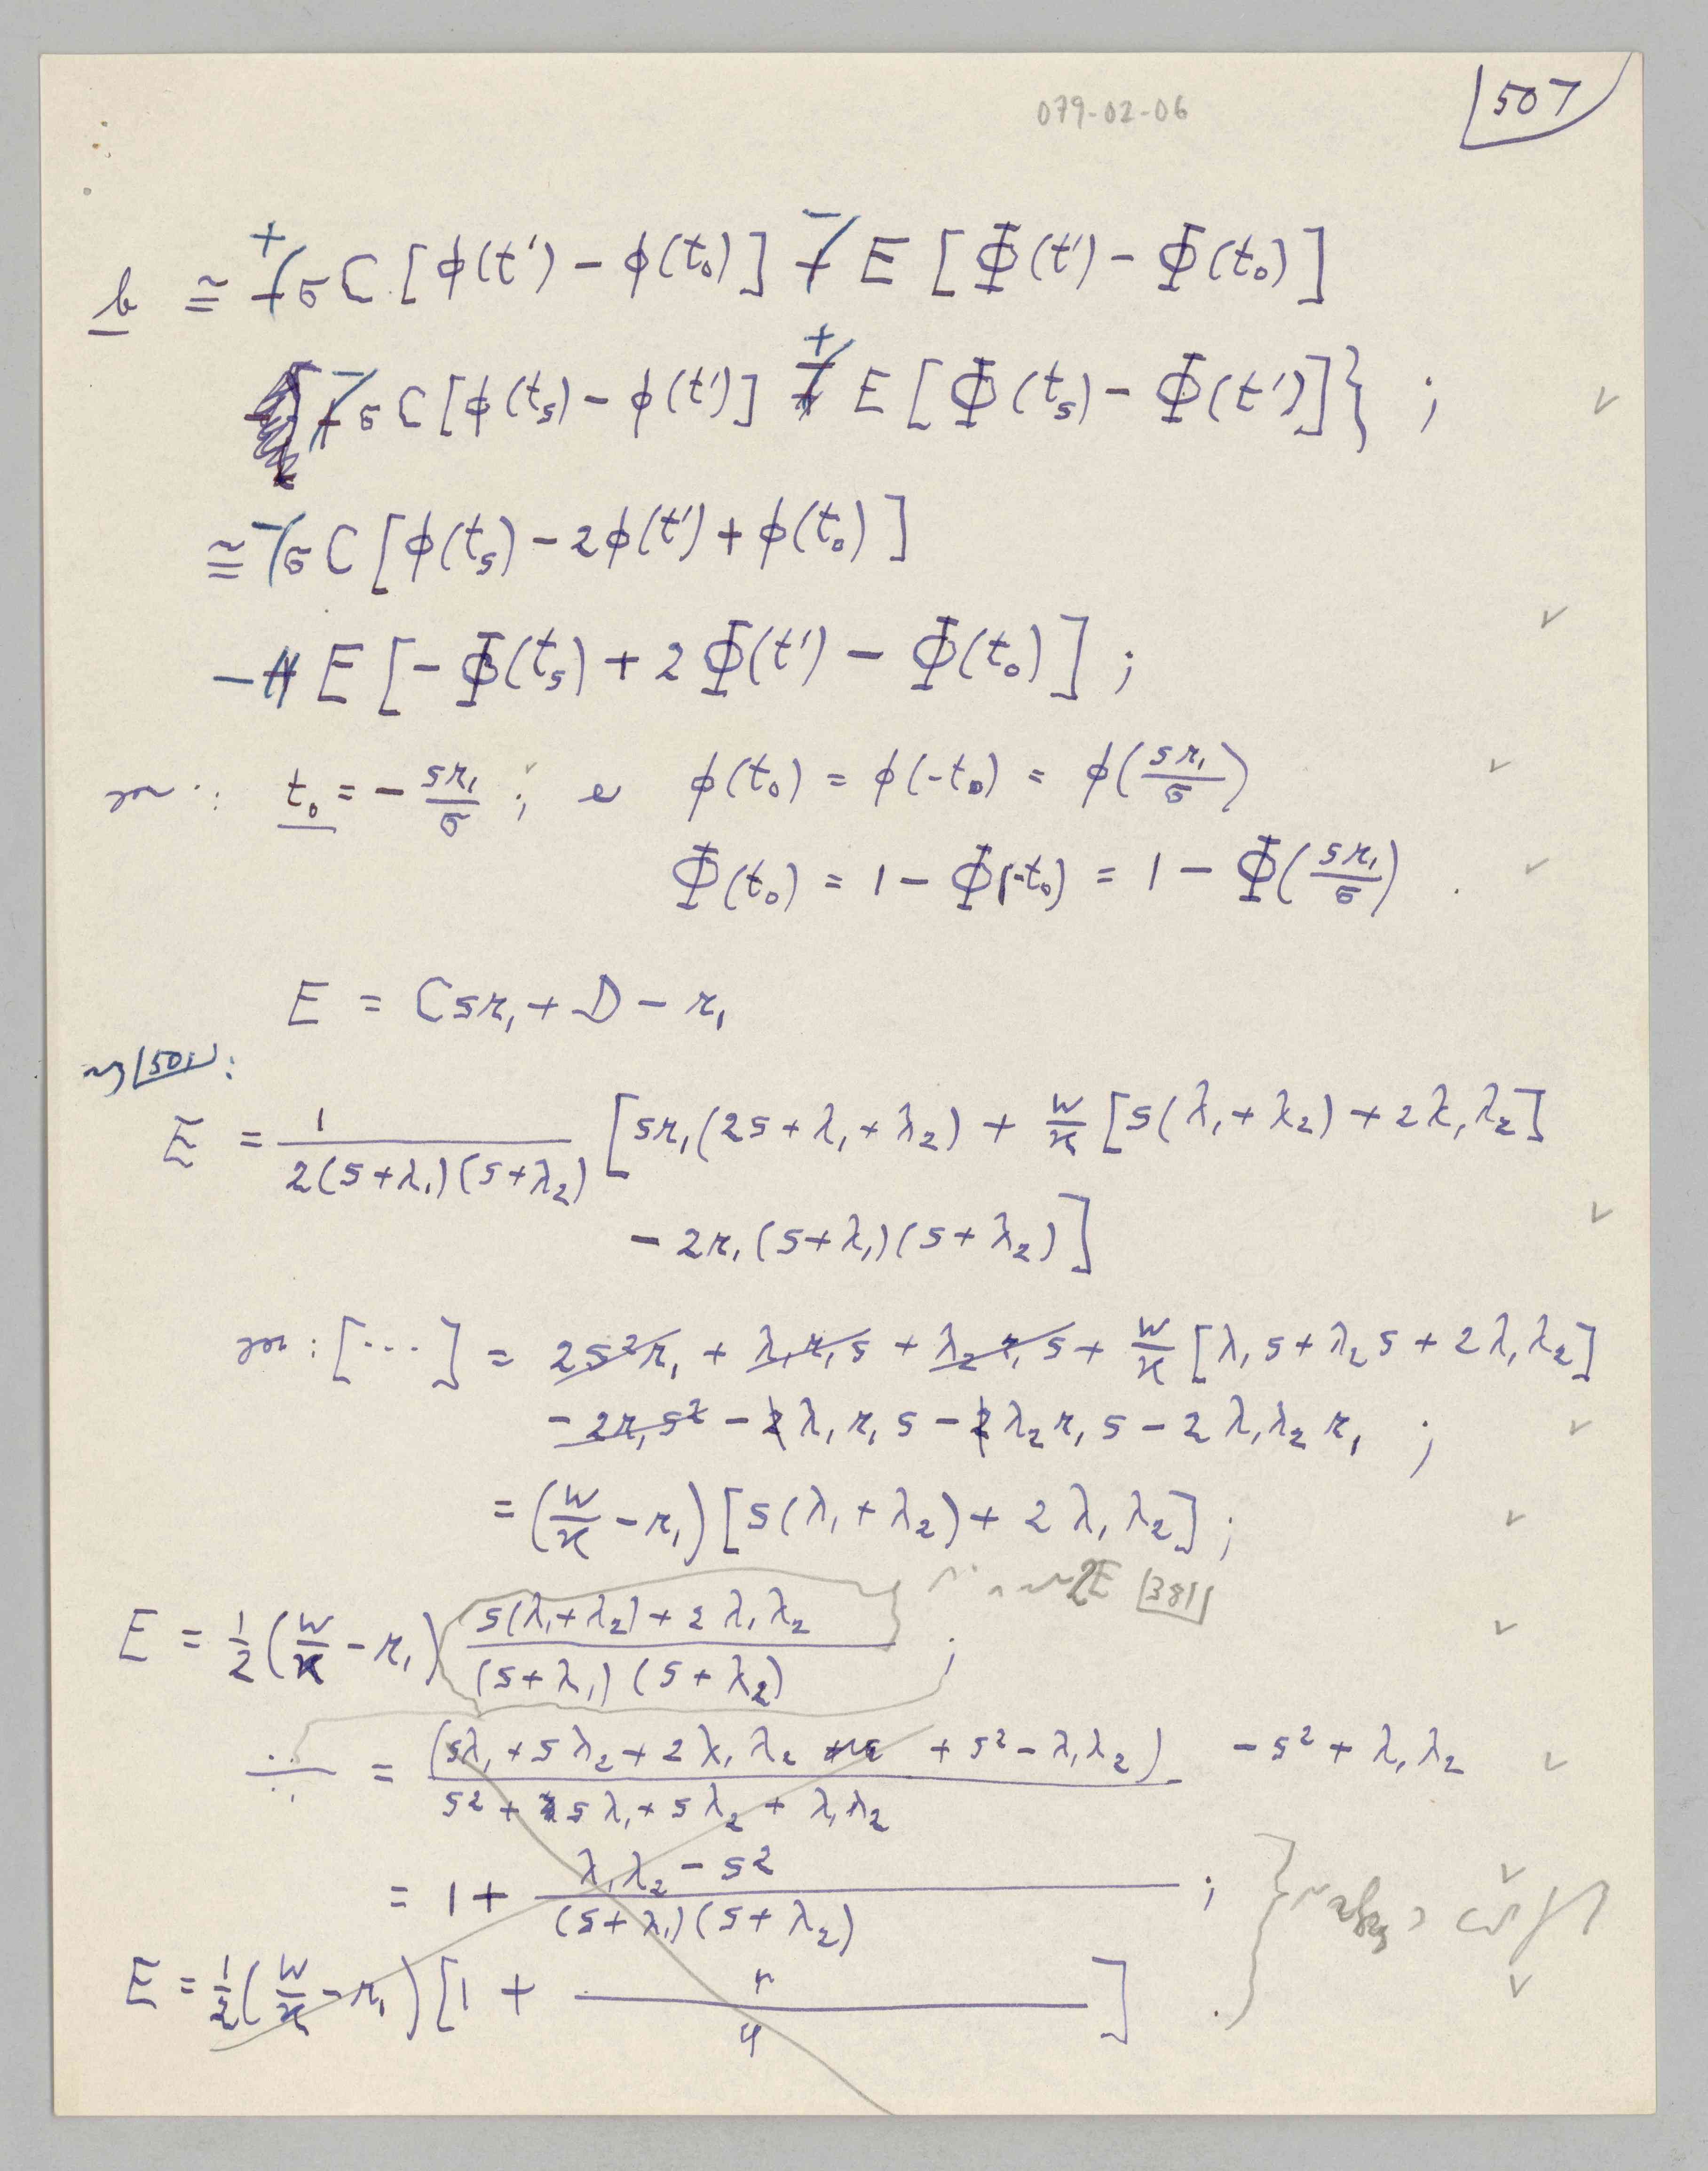 507
079-02-06
b ≅ + σC [ϕ(t') − ϕ(t₀)] − E [Φ(t') − Φ(t₀)]
− σC [ϕ(tₛ) − ϕ(t')] + E [Φ(tₛ) − Φ(t')]} ;
≅ − σC [ϕ(tₛ) − 2ϕ(t') + ϕ(t₀)]
− E [− Φ(tₛ) + 2Φ(t') − Φ(t₀)] ;
t₀ = − sr₁/σ ; ϕ(t₀) = ϕ(−t₀) = ϕ(sr₁/σ)
Φ(t₀) = 1 − Φ(−t₀) = 1 − Φ(sr₁/σ) .
E = Csr₁ + D − r₁
501 :
E = 1/2(s+λ₁)(s+λ₂) [sr₁(2s + λ₁ + λ₂) + w/κ [s(λ₁ + λ₂) + 2λ₁λ₂]
− 2r₁(s+λ₁)(s+λ₂)]
: [···] = 2s²r₁ + λ₁r₁s + λ₂r₁s + w/κ [λ₁s + λ₂s + 2λ₁λ₂]
− 2r₁s² − 2λ₁r₁s − 2λ₂r₁s − 2λ₁λ₂r₁ ;
= (w/κ − r₁) [s(λ₁ + λ₂) + 2λ₁λ₂] ;
2E 381
E = 1/2 (w/κ − r₁) s(λ₁+λ₂) + 2λ₁λ₂/(s+λ₁)(s+λ₂) ;
= (sλ₁ + sλ₂ + 2λ₁λ₂ + s² − λ₁λ₂) − s² + λ₁λ₂/s² + sλ₁ + sλ₂ + λ₁λ₂
= 1 + λ₁λ₂ − s²/(s+λ₁)(s+λ₂) ;
E = 1/2 (w/κ − r₁) [1 + ]